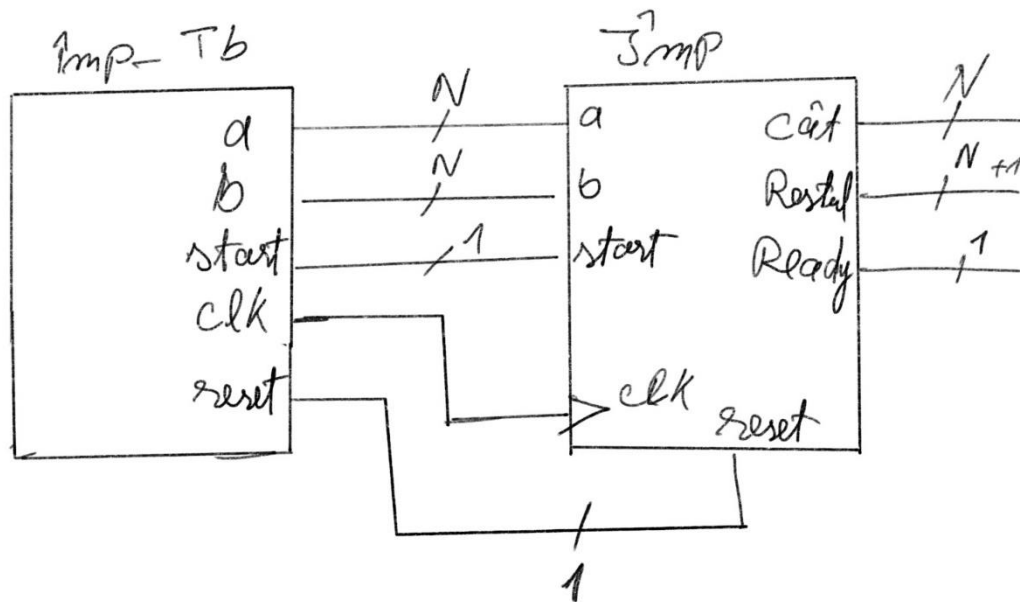 Împ_Tb
Împ
a
b
start
clk
reset
N
N
1
a
b
start
clk
reset
Cât
Restul
Ready
N
N+1
1
1